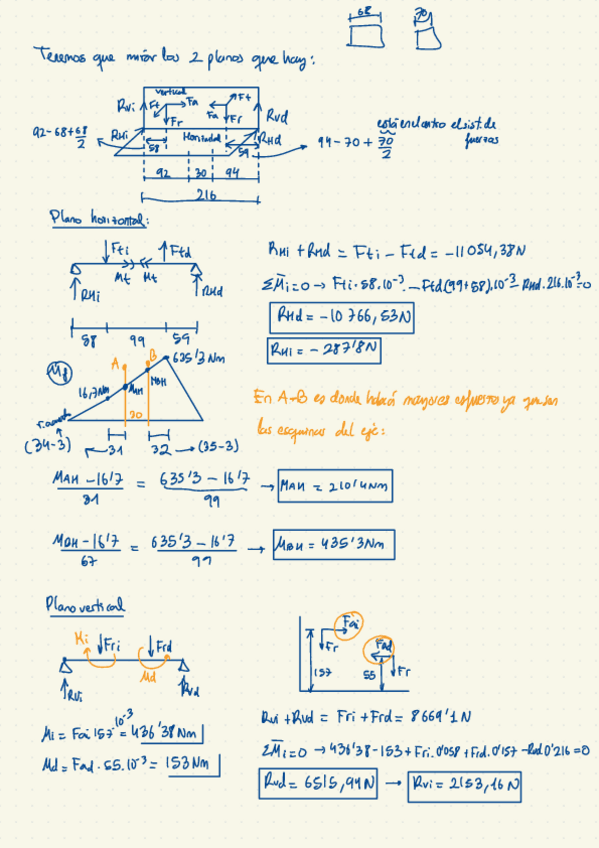 68
70
Tenemos que mirar los 2 planos que hay:
vertical
Rvi Ft Fa Ft Rvd
Fr Fa Fr
92-68+68/2
RHi Horizontal RHd
58 59
está en el centro el sist. de fuerzas
94-70+70/2
92 30 94
216
Plano horizontal:
Fti Ftd
Mt Mt
RHi RHd
RHi + RHd = Fti - Ftd = -11054,38N
ΣM̄i=0 → Fti·58·10⁻³ - Ftd(99+58)·10⁻³ - RHd·216·10⁻³=0
RHd = -10766,53N
RHi = -287'8N
58 99 59
Mf
A B 635'3 Nm
16,7Nm MAH MBH
30
(34-3) 31 32 → (35-3)
En A-B es donde habrá mayores esfuerzo ya que son
las esquinas del eje:
MAH - 16'7 / 31 = 635'3 - 16'7 / 99 → MAH = 210'4Nm
MBH - 16'7 / 67 = 635'3 - 16'7 / 99 → MBH = 435'3Nm
Plano vertical
Mi Fri Frd
Md
Rvi Rvd
Fai
Fr
Fad
157 55 Fr
Mi = Fai·157·10⁻³ = 436'38 Nm
Md = Fad·55·10⁻³ = 153Nm
Rvi + Rvd = Fri + Frd = 8669'1N
ΣM̄i=0 → 436'38-153+Fri·0'058+Frd·0'157-Rvd·0'216=0
Rvd = 6515,94N → Rvi = 2153,16N